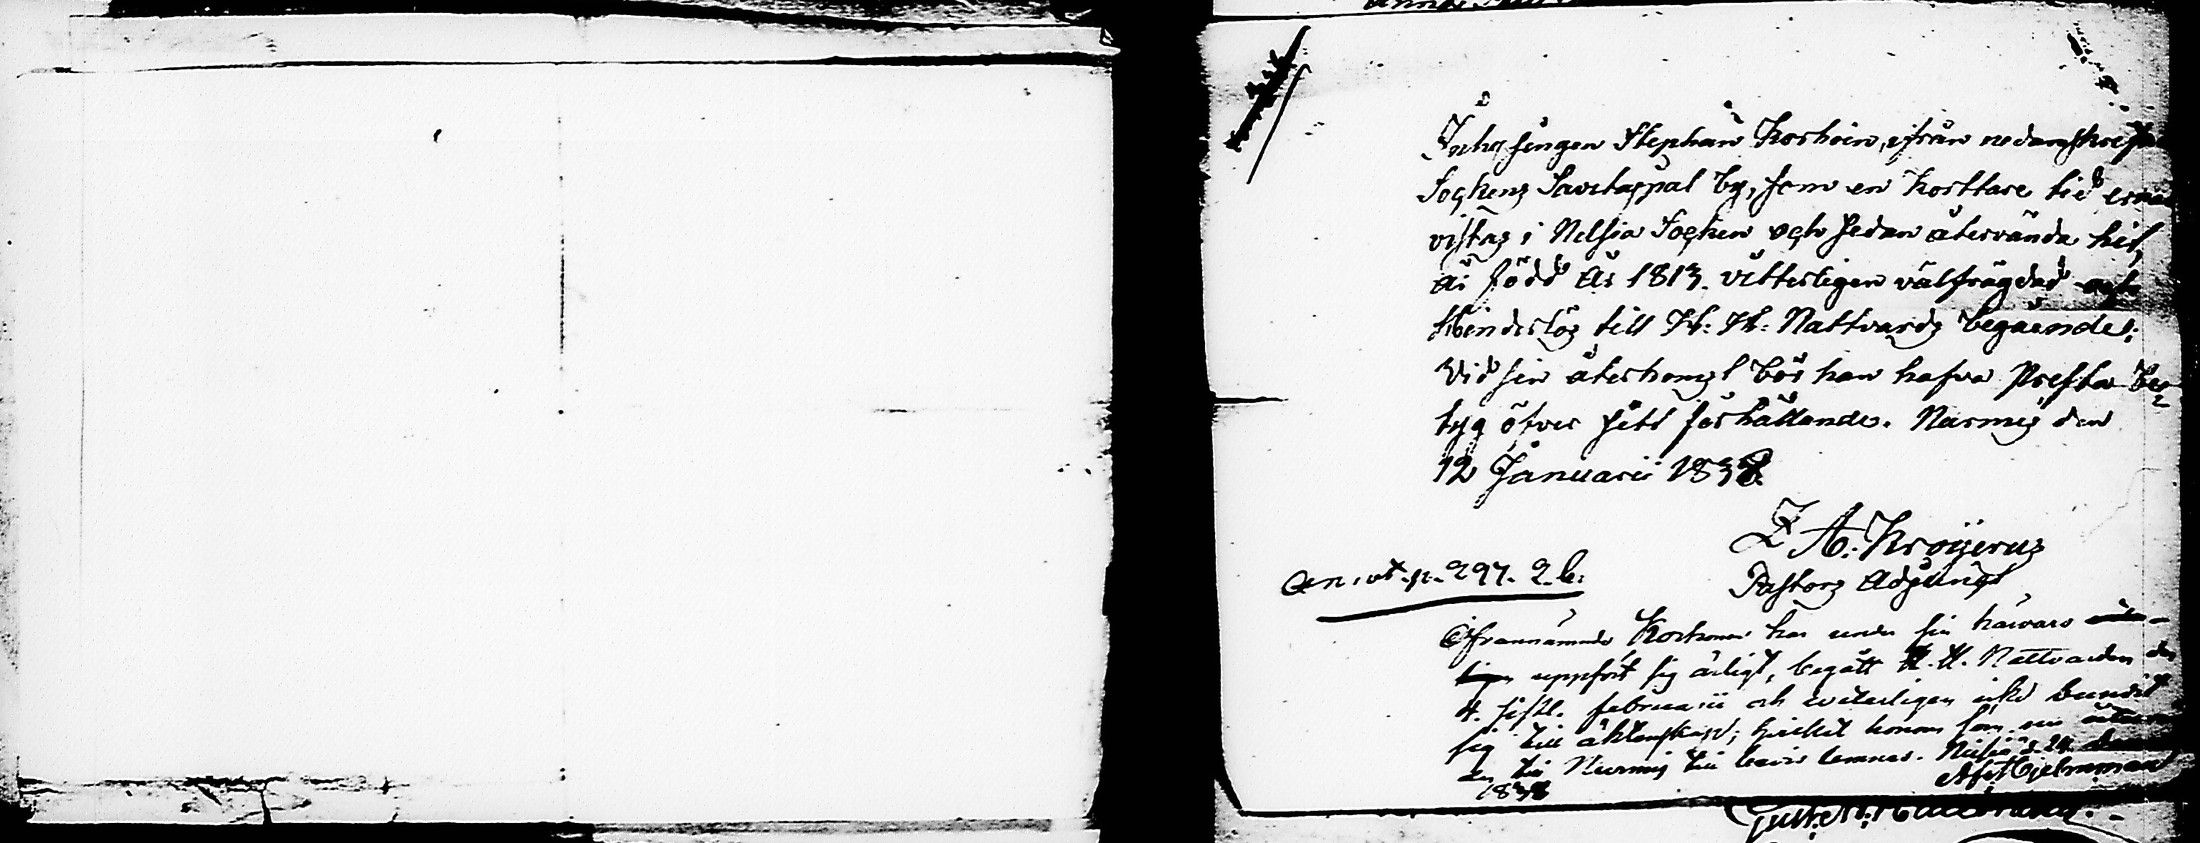 Inhysingen Stephan Korhoin, ifrån nedanskrefne
Sochens Savitaipal by, som en kortare tid ernar
vistas i Nilsia Sochen och sedan återvända hit,
är född År 1813. vitterligen välfrägdad och
hinderlös till H: H: Nattvards begående:
Vid sin återkomst bör han hafva Presta be-
tyg öfver sitt förhållande. Nurmis den
12 Januarii 1838.
Z A: Kroÿerus
Pastors Adjunct
An. vt. p. 297. 2. b:
Ofvannämnde Korhonen har under sin härvaro
uppfört sig ärligt, begått H. H. Nattvarden den
4. sistl. februarii och witterligen icke bundit
sig till äktenskap; hvilket honom som nu
till Nurmis till bevis lemnas. Nilsiä d. 24
1838